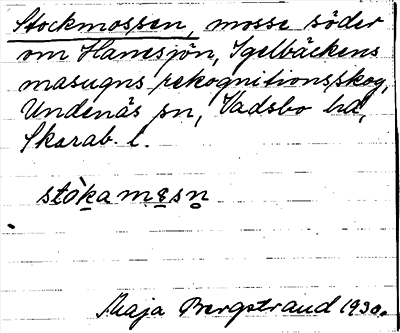 Stockmossen, mosse söder
om Hanesjön, Igelbäckens
masugns rekognitionsskog,
Undenäs sn, Vadsbo hd,
Skarab. l.
Maja Bergstrand 1930.